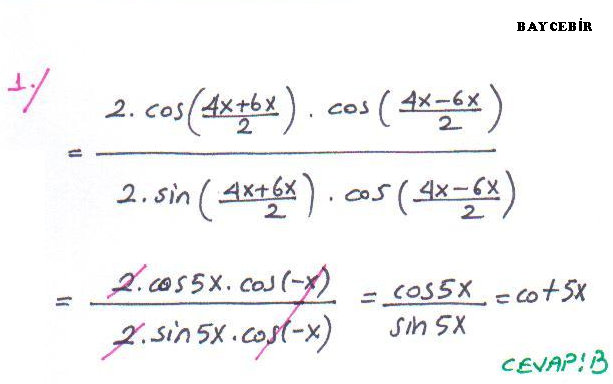 BAYCEBİR
1./
= 2.cos(4x+6x/2).cos(4x-6x/2) / 2.sin(4x+6x/2).cos(4x-6x/2)
= 2.cos5x.cos(-x) / 2.sin5x.cos(-x) = cos5x / sin5x = cot5x
CEVAP:B